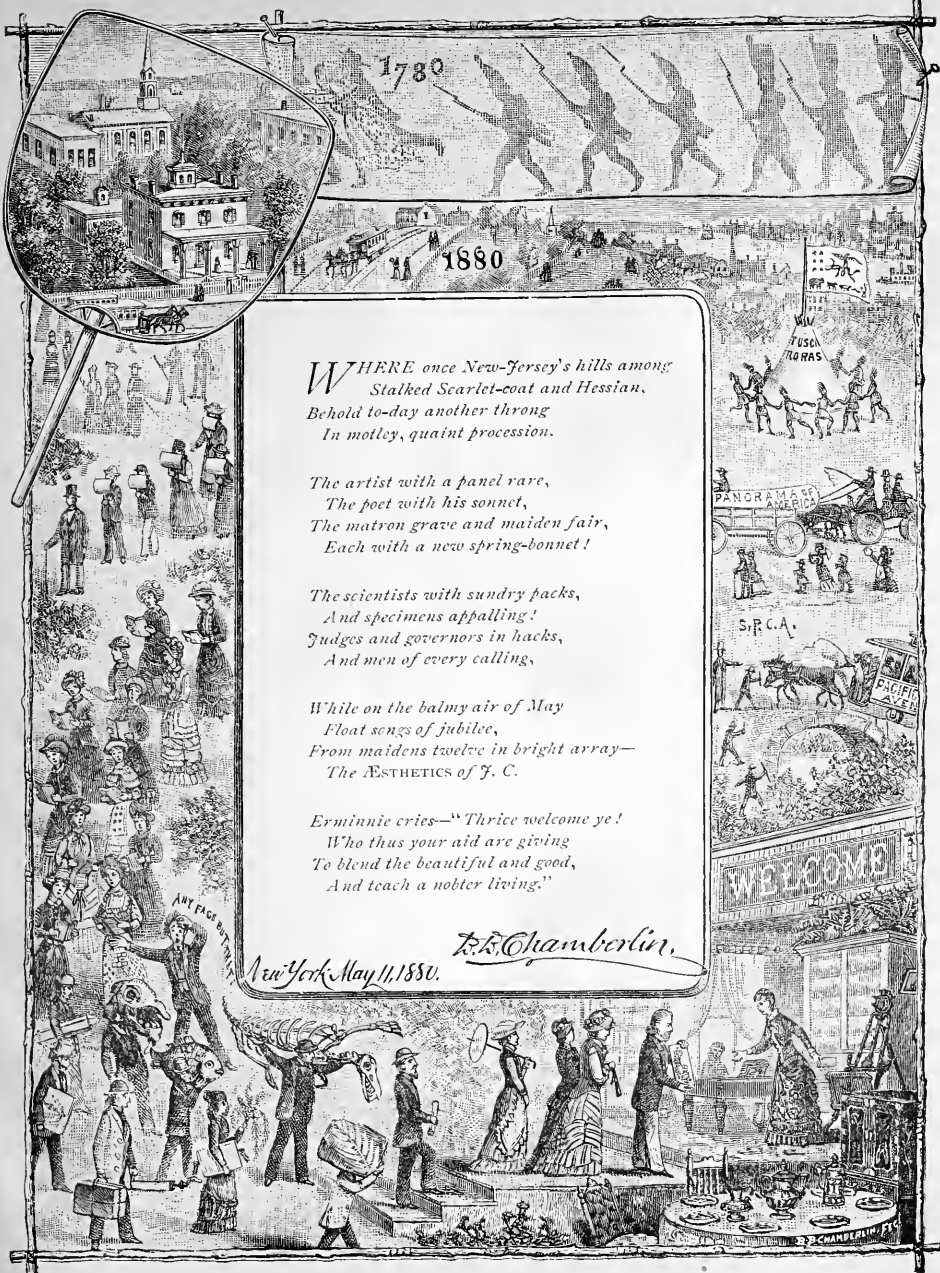 1780
1880
TUSCA
RORAS
WHERE once New-Jersey's hills among
Stalked Scarlet-coat and Hessian,
Behold to-day another throng
In motley, quaint procession.
The artist with a panel rare,
The poet with his sonnet,
The matron grave and maiden fair,
Each with a new spring-bonnet!
The scientists with sundry packs,
And specimens appalling!
Judges and governors in hacks,
And men of every calling,
While on the balmy air of May
Float songs of jubilee,
From maidens twelve in bright array—
The ÆSTHETICS of J. C.
Erminnie cries—"Thrice welcome ye!
Who thus your aid are giving
To blend the beautiful and good,
And teach a nobter living."
B.B. Chamberlin.
New York May 11, 1880.
PANORAMA OF
AMERICA
S.P.C.A.
PACIFIC
AVEN
WELCOME
ANY FACE BUT THAT
B.B. CHAMBERLIN, F